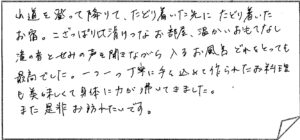 山道を登って降りて、たどり着いた先に たどり着いた
お宿。こざっぱり片づけなお部屋、温かいおもてなし
滝の音とせみの声を聞きながら 入るお風呂 どれをとっても
最高でした。一つ一つ丁寧に手を込めて作られたお料理
も美味しくて身体に力が沸いてきました。
また是非お訪れたいです。